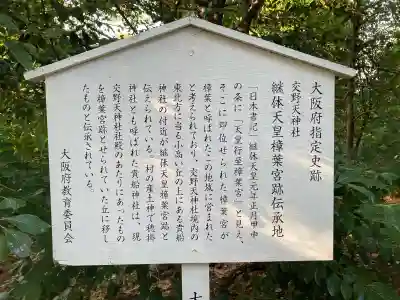 大阪府指定史跡
交野天神社
継体天皇樟葉宮跡伝承地
『日本書記』継体天皇元年正月甲申
の条に「天皇行至樟葉宮」と見え、
そこに即位せられた樟葉宮が
樟葉と呼ばれたこの地域に営まれた
と考えられており、交野天神社境内の
東北方に当る小高い丘の上にある貴船
神社の付近が継体天皇樟葉宮跡と
伝えられている。村の産土神で穂掛
神社とも呼ばれた貴船神社は、現
交野天神社社殿のあたりにあったもの
を樟葉宮跡とせられていた丘に移し
たものと伝承されている。
大阪府教育委員会